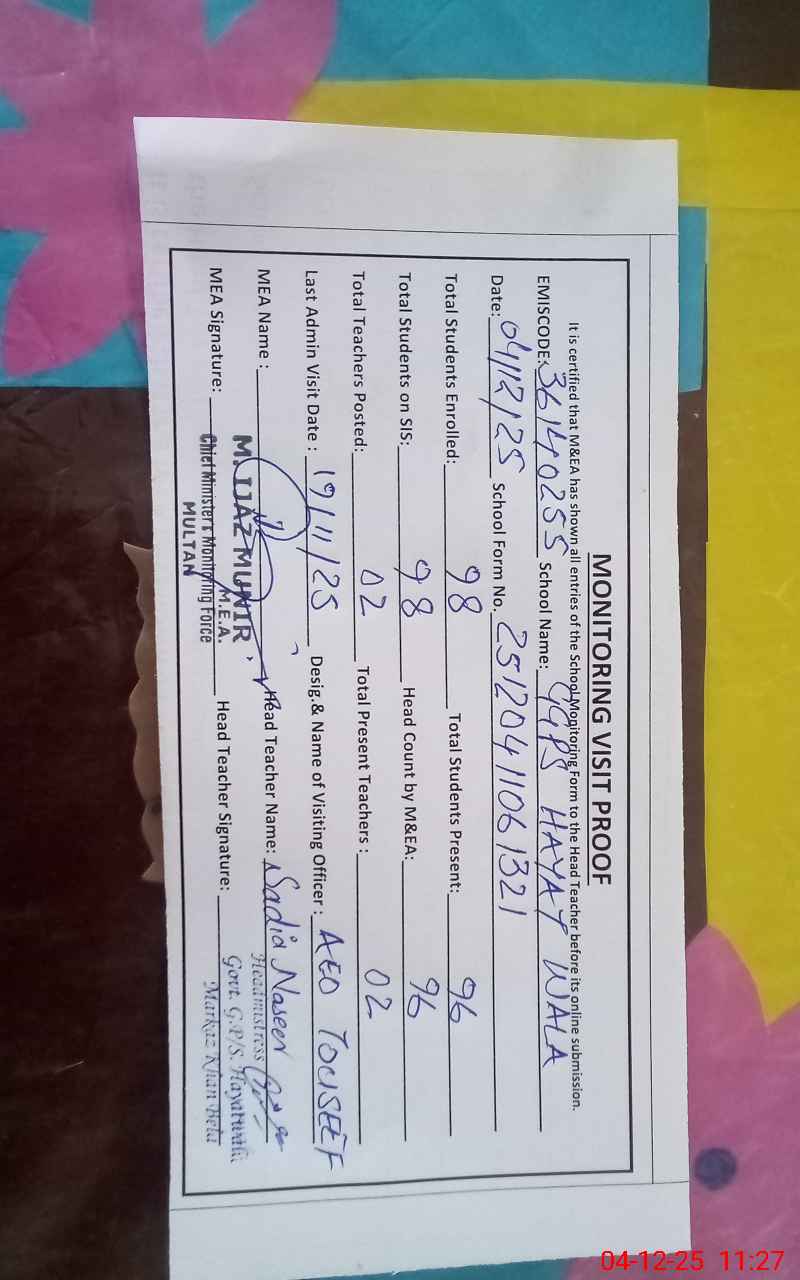 MONITORING VISIT PROOF
It is certified that M&EA has shown all entries of the School Monitoring Form to the Head Teacher before its online submission.
EMISCODE: 36140255 School Name: GGPS HAYAT WALA
Date: 04/12/25 School Form No. 25120411061321
Total Students Enrolled: 98 Total Students Present: 96
Total Students on SIS: 98 Head Count by M&EA: 96
Total Teachers Posted: 02 Total Present Teachers : 02
Last Admin Visit Date : 19/11/25 Desig.& Name of Visiting Officer : AEO TOUSEEF
MEA Name : M. IJAZ MUNIR Head Teacher Name: Sadia Naseer
M.E.A. Headmistress
MEA Signature: Chief Minister's Monitoring Force Head Teacher Signature: Govt. G.P/S. Hayatwala
MULTAN Markaz Khan Bela
04-12-25 11:27